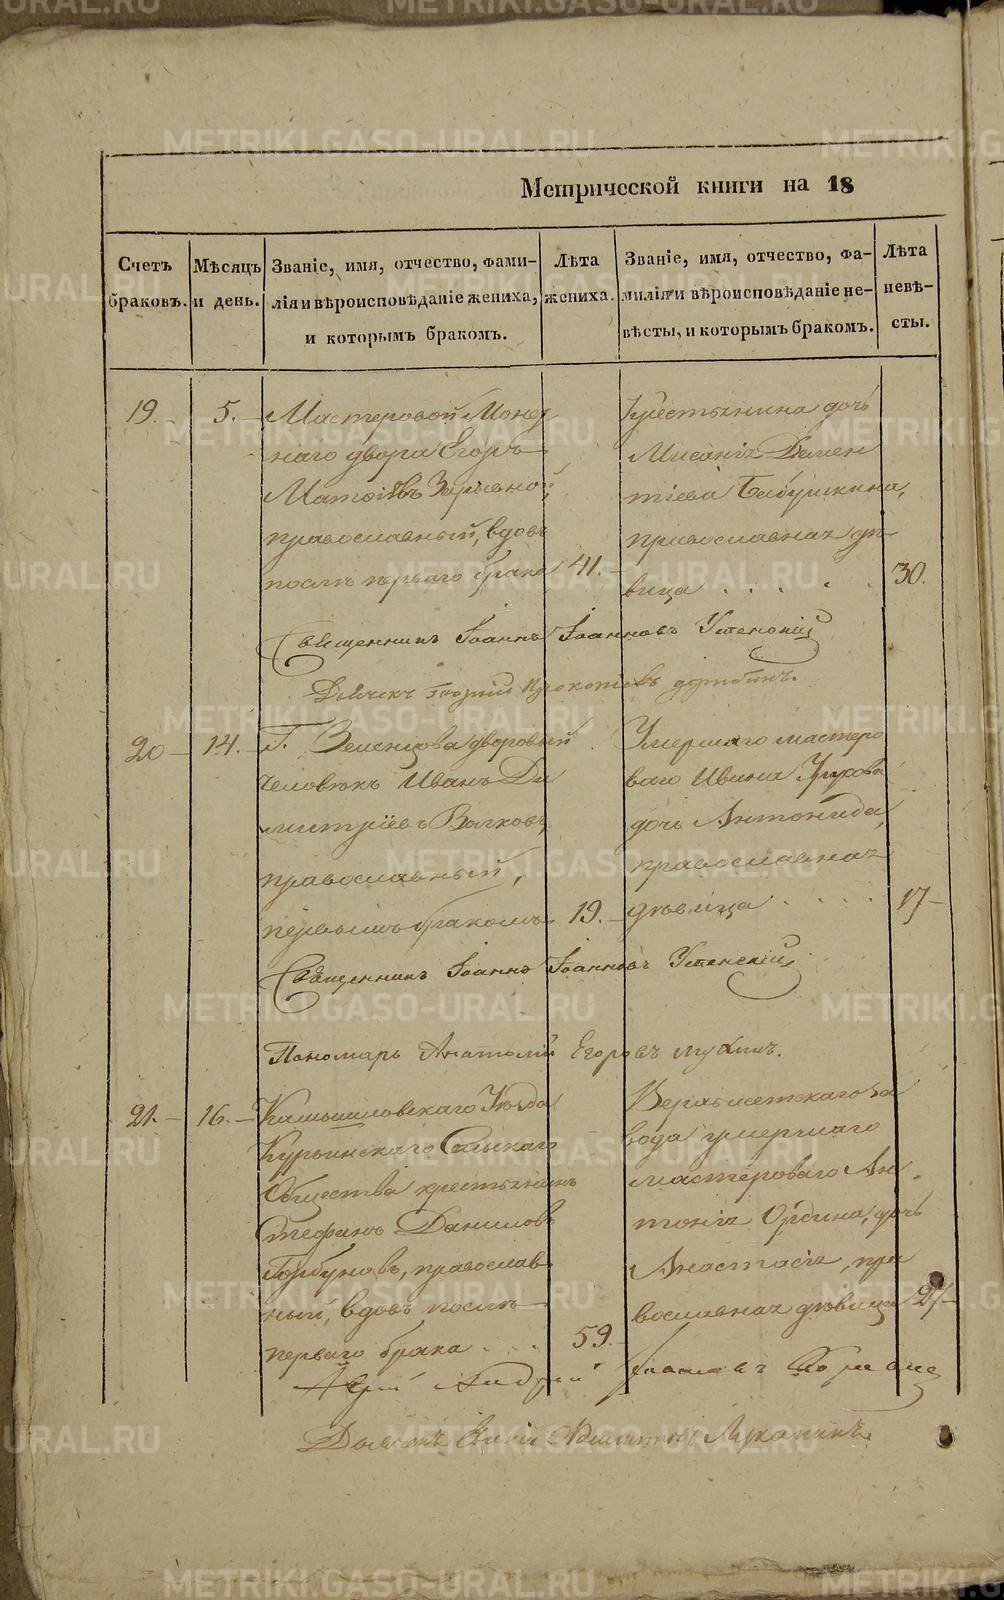 METRIKI.GASO-URAL.RU
Метрической книги на 18
Счетъ браковъ.
Мѣсяцъ и день.
Званіе, имя, отчество, фами-
лія и вѣроисповѣданіе жениха,
и которымъ бракомъ.
Лѣта
жениха.
Званіе, имя, отчество, фа-
милія и вѣроисповѣданіе не-
вѣсты, и которымъ бракомъ.
Лѣта
невѣ-
сты.
19. 5.
Мастеровой Монет
наго двора Егоръ
православный, вдовъ
послѣ перваго брака 41.
Крестьянина дочь
Бабушкина,
православная дѣ-
вица 30.
Священникъ Іоаннъ Іоанновъ Успенскій
Дьячекъ
20 14.
Г. Зеленцова дворовый
человѣкъ Иванъ Ди
митріевъ Волковъ,
православный,
первымъ бракомъ 19.
Умершаго мастеро
ваго Ивана
дочь Антонида,
православная
дѣвица 17
Священникъ Іоаннъ Іоанновъ Успенскій
Пономарь Анатолій Егоровъ
21. 16.
Камышловскаго Уѣзда
Курьинскаго Сельскаго
Общества крестьянинъ
Стефанъ Даниловъ
Горбуновъ, православ
ный, вдовъ послѣ
перваго брака 59.
Верхъисетскаго за
вода умершаго
мастероваго Ан
тонія дочь
Анастасія, пра
вославная дѣвица
Іерей Андрей
Дьячекъ